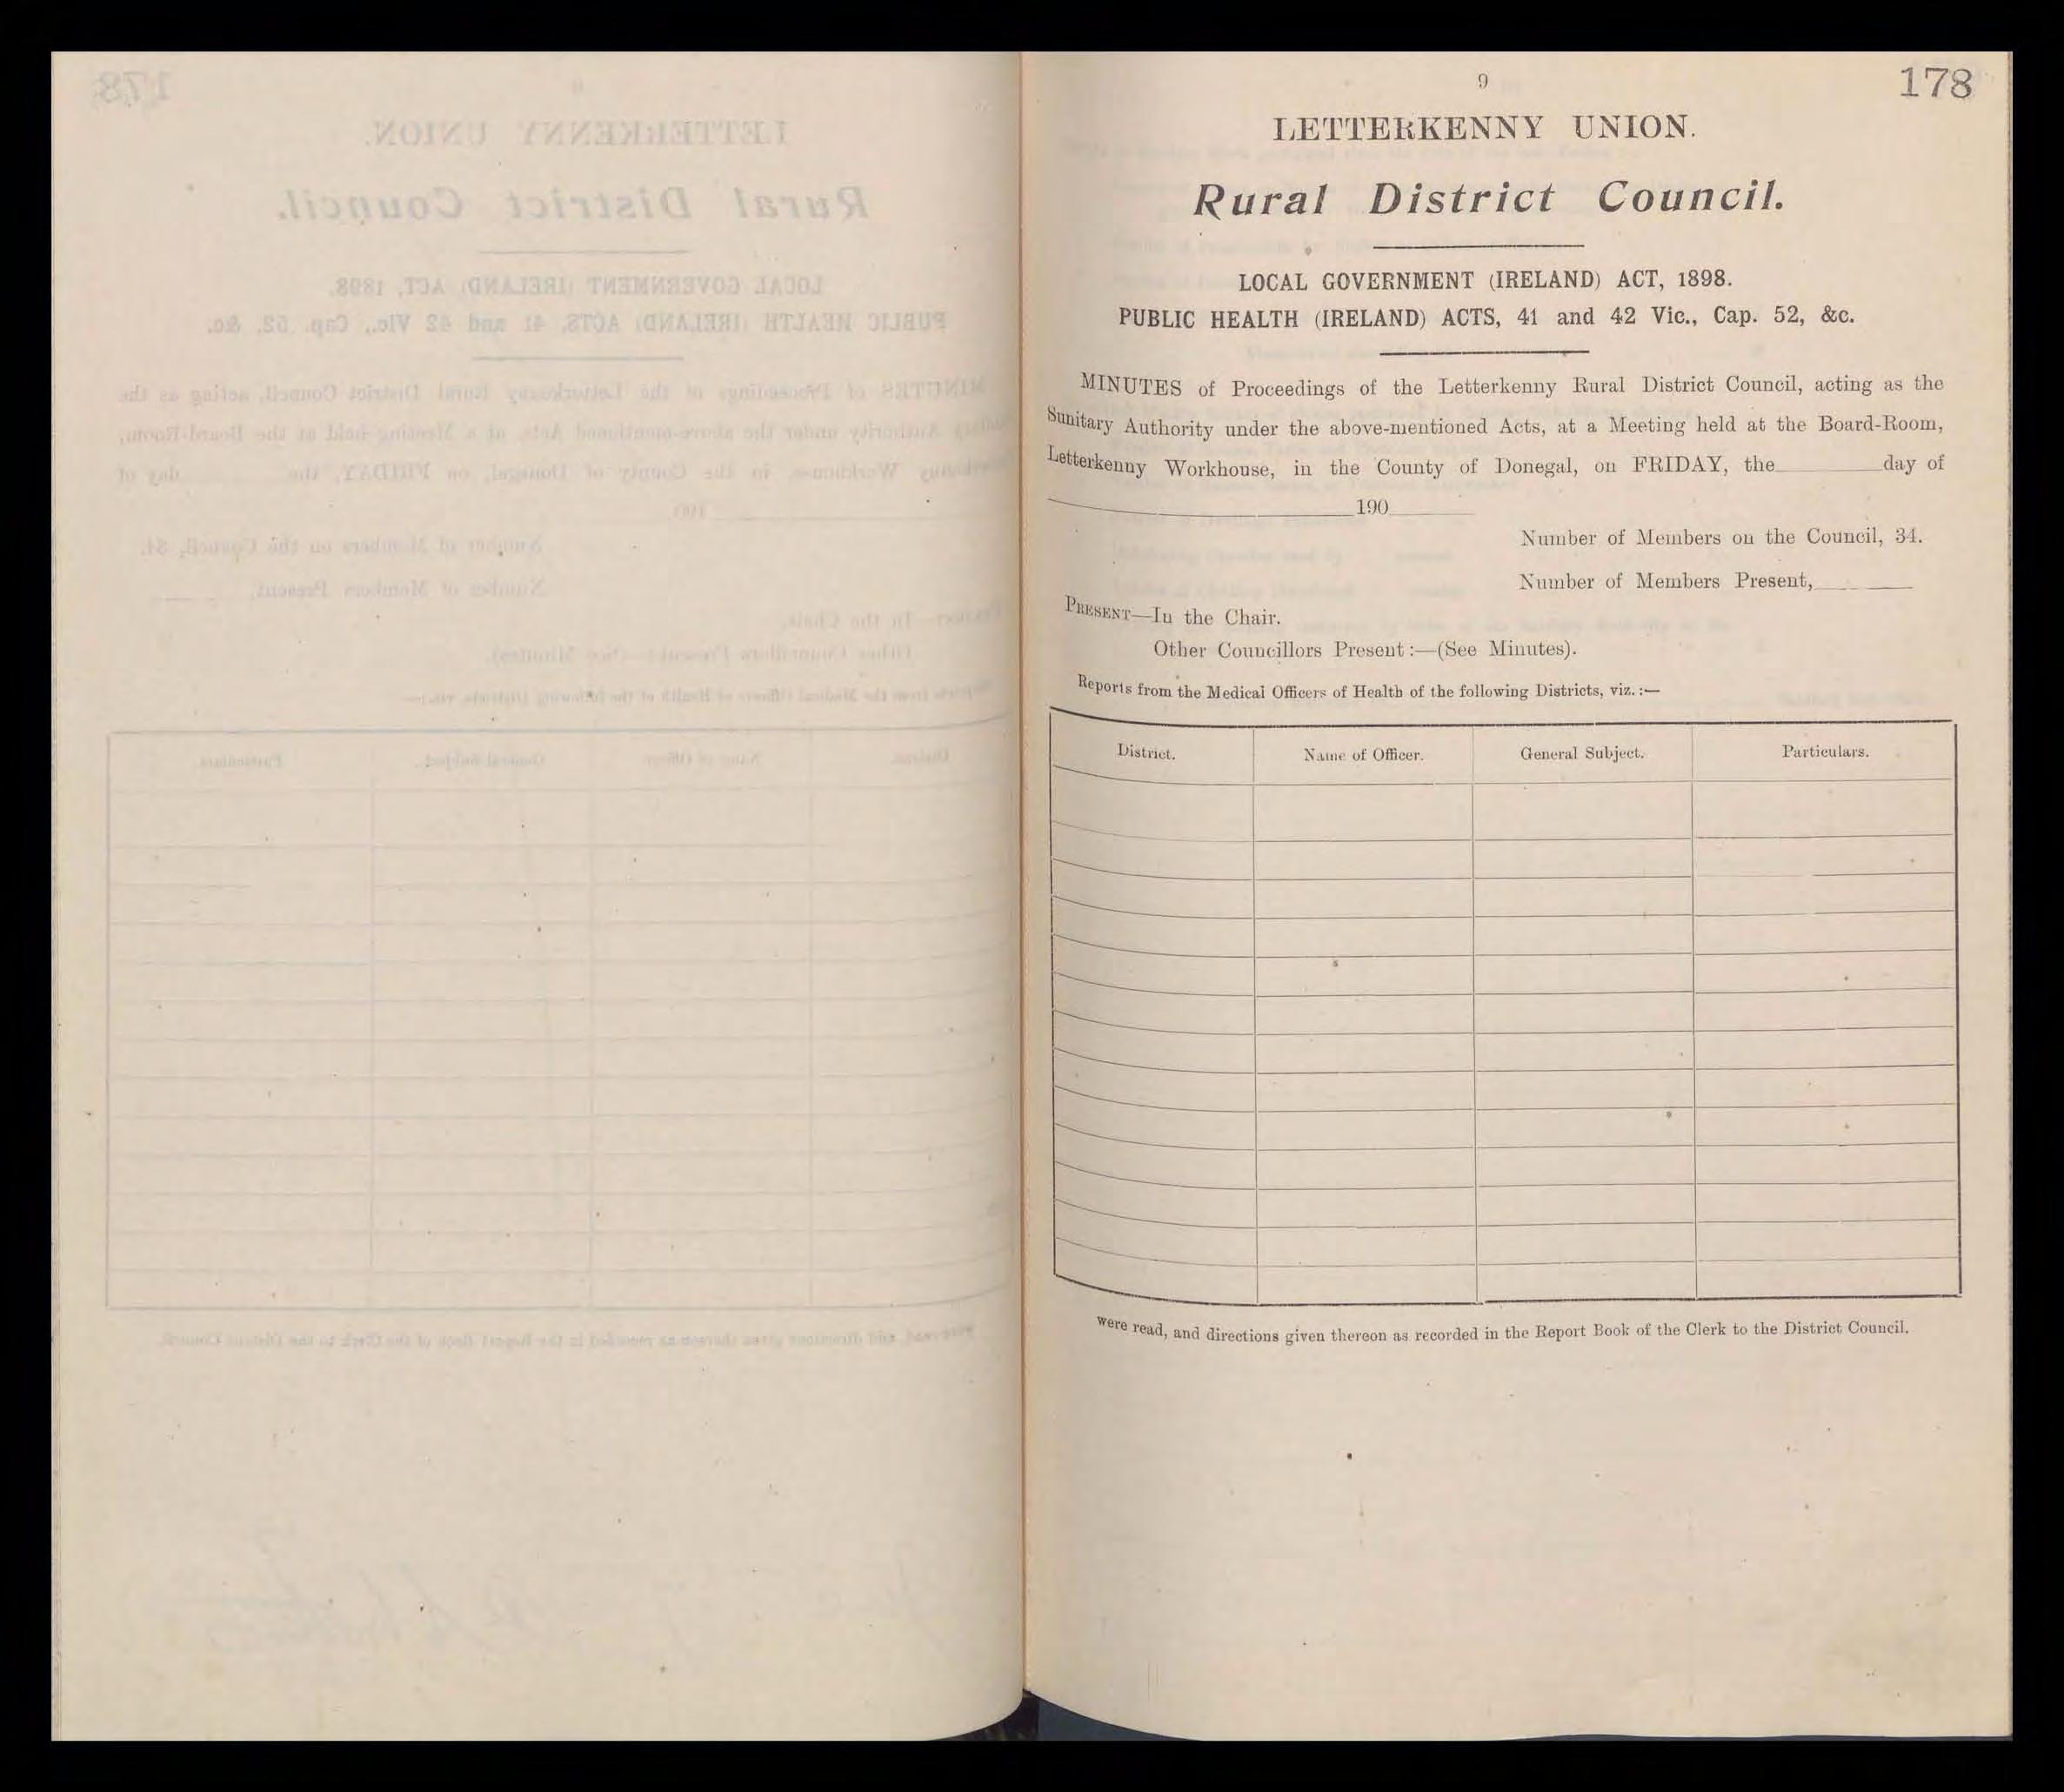 9
178
LETTERKENNY UNION.
Rural District Council.
LOCAL GOVERNMENT (IRELAND) ACT, 1898.
PUBLIC HEALTH (IRELAND) ACTS, 41 and 42 Vic., Cap. 52, &c.
MINUTES of Proceedings of the Letterkenny Rural District Council, acting as the
Sanitary Authority under the above-mentioned Acts, at a Meeting held at the Board-Room,
Letterkenny Workhouse, in the County of Donegal, on FRIDAY, the day of
190
Number of Members on the Council, 34.
Number of Members Present,
PRESENT—In the Chair.
Other Councillors Present:—(See Minutes).
Reports from the Medical Officers of Health of the following Districts, viz.:—
District. Name of Officer. General Subject. Particulars.
were read, and directions given thereon as recorded in the Report Book of the Clerk to the District Council.